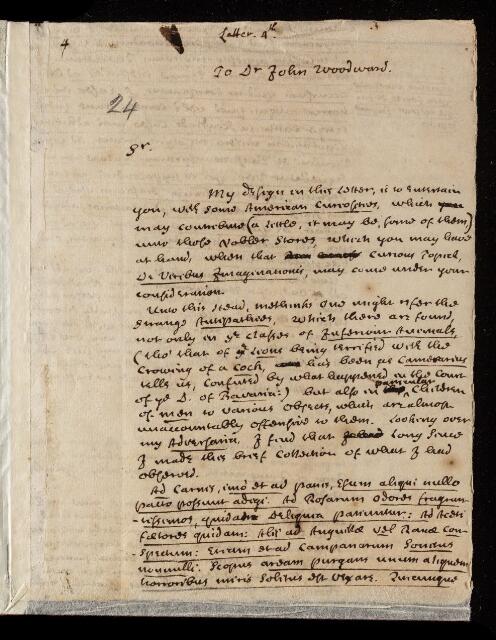 4
Letter. 4th.
To Dr John Woodward.
24
Sr.
My Design in this Letter, is to Entertain
you, with some American Curiosities, which you
may contribute (a little, it may be, some of them)
unto those Nobler Stores, which you may have
at hand, when that curious Topick,
De Viribus Imaginationis, may come under your
consideration.
Unto this Head, methinks one might refer the
strange Antipathies, which there are found,
not only in ye classes of Inferiour Animals
(tho' that of ye Lions being terrified with the
Crowing of a Cock, has been as Camerarius
tells us, confuted by what happened in the Court
of ye D. of Bavaria:) but also in particular Children
of men to various objects, which are almost
unaccountably offensive to them. Looking over
my Adversaria, I find that long since
I made this brief Collection of what I had
observed.
Ad Carnis, imò et ad panis, Esum aliqui nullo
pacto possunt adigi. Ad Rosarum odores fragran-
-tissimos, quidam Deliquia patiuntur: Ad Aceti
fœtores quidam: Alii ad Anguillæ vel Ranæ con-
-spectum: Etiam et ad Campanarum Sonitus
nonnulli. Scopis aream purgans unum aliquem
horroribus miris solitus est